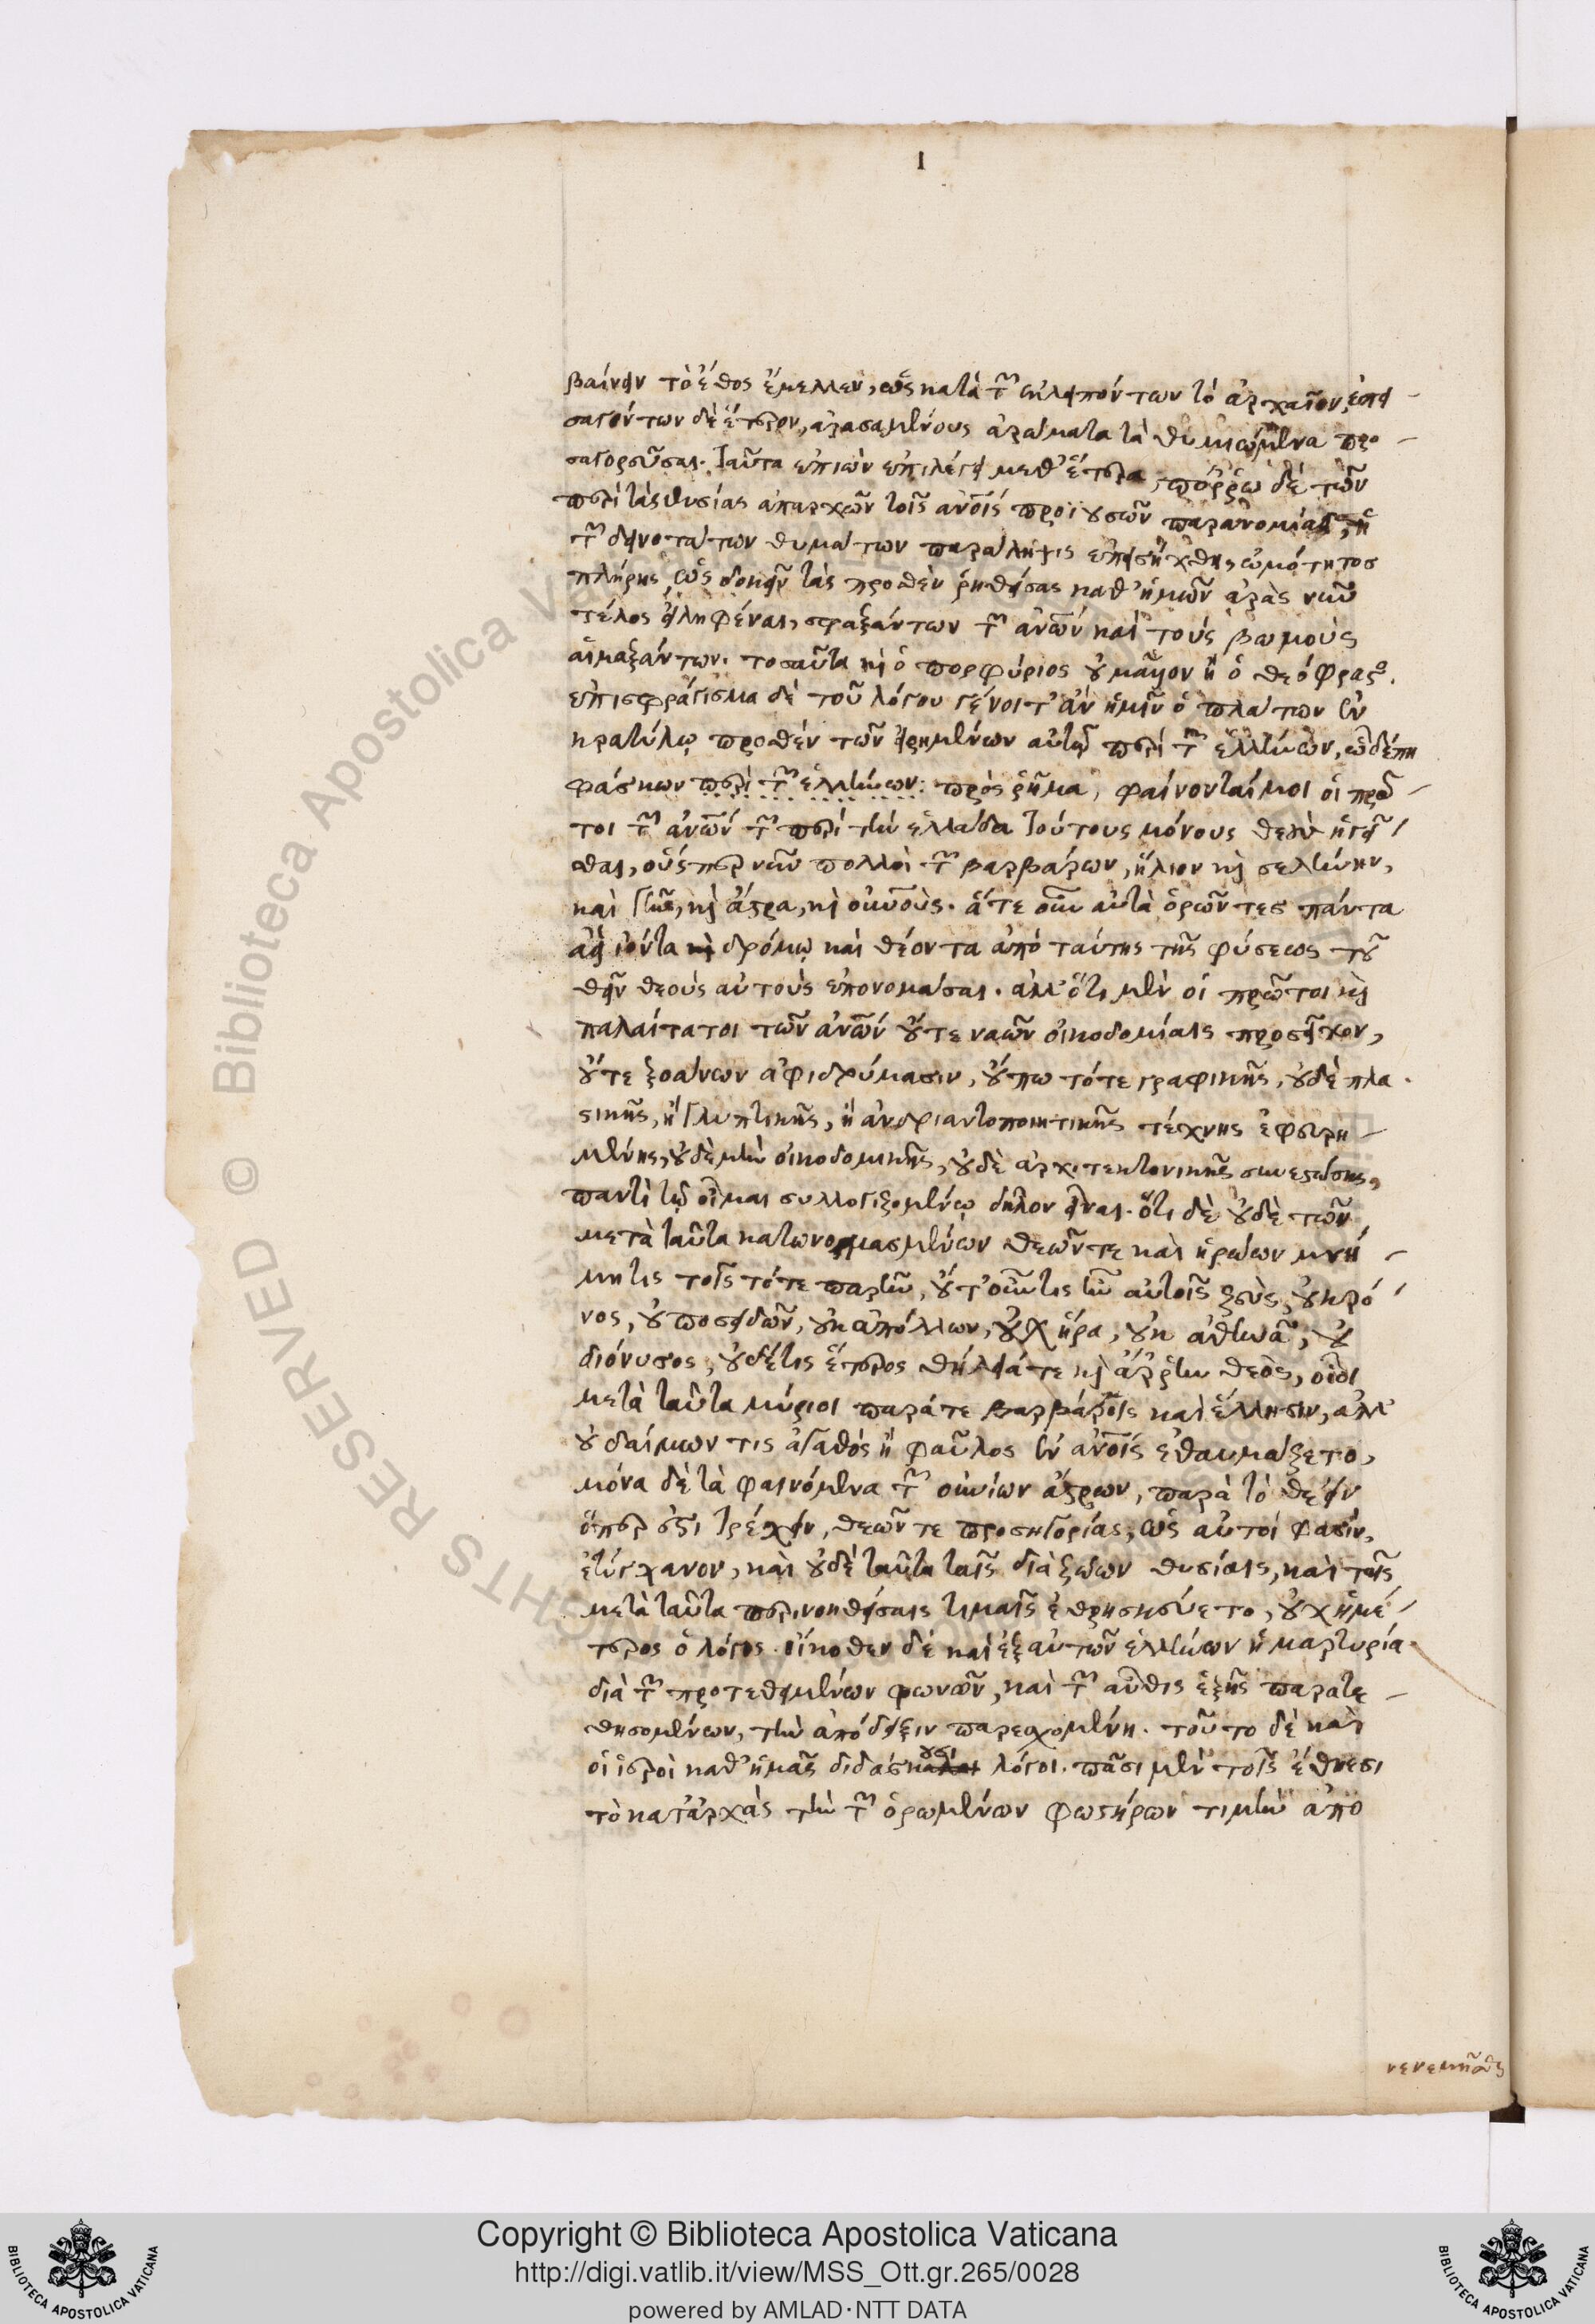 I
βαίνειν τὸ ἔθος ἔμελλεν, ὡς κατὰ τῶν ἐκλειπόντων τὸ ἀρχαῖον, ἐπει-
σαγόντων δὲ ἕτερον, ἀρασαμένους ἀρώματα τὰ θυμιώμενα προ-
σαγορεῦσαι. ταῦτα εἰπὼν ἐπιλέγει μεθ' ἕτερα, πόρρω δὲ τῶν
περὶ τὰς θυσίας ἀπαρχῶν τοῖς ἀνοῖς προϊουσῶν παρανομίας, ἡ
τῶν δεινοτάτων θυμάτων παράληψις ἐπεισήχθη, ὠμότητος
πλήρης, ὡς δοκεῖν τὰς πρόσθεν ῥηθείσας καθ' ἡμῶν ἀρὰς νῦν
τέλος εἰληφέναι, σφαξάντων τῶν ἀνῶν καὶ τοὺς βωμοὺς
αἱμαξάντων. τοσαῦτα καὶ ὁ πορφύριος οὐ μᾶλλον ἢ ὁ θεόφραστος.
ἐπισφράγισμα δὲ τοῦ λόγου γένοιτ' ἂν ἡμῖν ὁ πλάτων ἐν
κρατύλῳ πρόσθεν τῶν εἰρημένων αὐτῷ περὶ τῶν ἑλλήνων, ὧδέ πη
φάσκων περὶ τῶν ἑλλήνων: πρὸς ῥῆμα, φαίνονταί μοι οἱ πρῶ-
τοι τῶν ἀνῶν τῶν περὶ τὴν ἑλλάδα τούτους μόνους θεοὺς ἡγεῖ-
σθαι, οὕσπερ νῦν πολλοὶ τῶν βαρβάρων, ἥλιον καὶ σελήνην,
καὶ γῆν, καὶ ἄστρα, καὶ οὐνοὺς. ἅτε οὖν αὐτὰ ὁρῶντες πάντα
ἀεὶ ἰόντα καὶ δρόμῳ καὶ θέοντα ἀπὸ ταύτης τῆς φύσεως τοῦ
θεῖν θεοὺς αὐτοὺς ἐπονομάσαι. ἀλλ' ὅτι μὲν οἱ πρῶτοι καὶ
παλαίτατοι τῶν ἀνῶν οὔτε ναῶν οἰκοδομίαις προσεῖχον,
οὔτε ξοάνων ἀφιδρύμασιν, οὔπω τότε γραφικῆς, οὐδὲ πλα-
στικῆς, ἢ γλυπτικῆς, ἢ ἀνδριαντοποιητικῆς τέχνης ἐφευρη-
μένης, οὐδὲ μὴν οἰκοδομικῆς, οὐδὲ ἀρχιτεκτονικῆς συνεστώσης,
παντὶ τῷ οἶμαι συλλογιζομένῳ δῆλον εἶναι. ὅτι δὲ οὐδὲ τῶν
μετὰ ταῦτα κατωνομασμένων θεῶν τε καὶ ἡρώων μνή-
μη τις τοῖς τότε παρῆν, οὔτ' οὖν τις ἦν αὐτοῖς ζεὺς, οὐ κρό-
νος, οὐ ποσειδῶν, οὐκ ἀπόλλων, οὐχ ἥρα, οὐκ ἀθηνᾶ, οὐ
διόνυσος, οὐδέ τις ἕτερος θήλειά τε καὶ ἄρρην θεὸς, οἷοι
μετὰ ταῦτα μύριοι παρά τε βαρβάροις καὶ ἕλλησιν, ἀλλ'
οὐ δαίμων τις ἀγαθὸς ἢ φαῦλος ἐν ἀνοῖς ἐθαυμάζετο,
μόνα δὲ τὰ φαινόμενα τῶν οὐνίων ἄστρων, παρὰ τὸ θέειν
ὅπερ ἐστὶ τρέχειν, θεῶν τε προσηγορίας, ὡς αὐτοί φασιν,
ἐτύγχανον, καὶ οὐδὲ ταῦτα ταῖς διὰ ζώων θυσίαις, καὶ ταῖς
μετὰ ταῦτα περινοηθείσαις τιμαῖς ἐθρησκεύετο, οὐχ ἡμέ-
τερος ὁ λόγος. οἴκοθεν δὲ καὶ ἐξ αὐτῶν ἑλλήνων ἡ μαρτυρία
διὰ τῶν προτεθειμένων φωνῶν, καὶ τῶν αὖθις ἑξῆς παρατε-
θησομένων, τὴν ἀπόδειξιν παρεχομένη. τοῦτο δὲ καὶ
οἱ ἱεροὶ καθ' ἡμᾶς διδάσκουσι λόγοι. πᾶσι μὲν τοῖς ἔθνεσι
τὸ κατ' ἀρχὰς τὴν τῶν ὁρωμένων φωστήρων τιμὴν ἀπο
νενεμῆσθαι
Copyright © Biblioteca Apostolica Vaticana
http://digi.vatlib.it/view/MSS_Ott.gr.265/0028
powered by AMLAD·NTT DATA